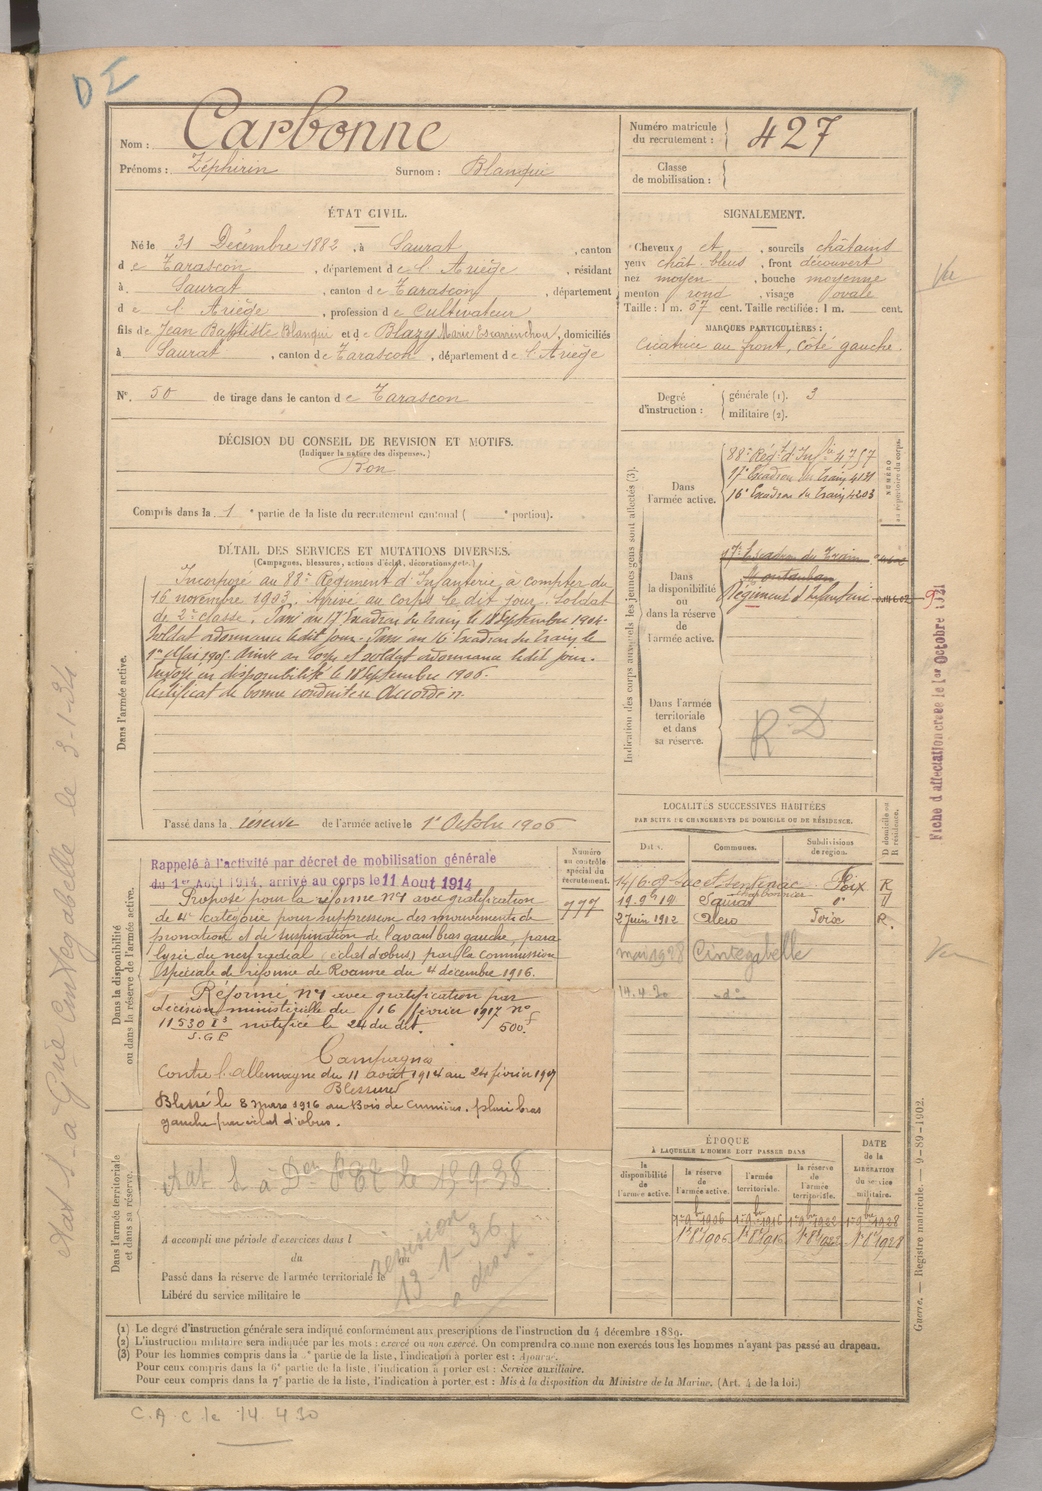 D I
Nom : Carbonne
Prénoms : Zéphirin Surnom : Blanqui
Numéro matricule
du recrutement : 427
Classe
de mobilisation :
ÉTAT CIVIL.
Né le 31 Décembre 1882, à Saurat, canton
de Tarascon, département de l'Ariège, résidant
à Saurat, canton de Tarascon, département
de l'Ariège, profession de Cultivateur
fils de Jean Baptiste Blanqui et de Blazy Marie, domiciliés
à Saurat, canton de Tarascon, département de l'Ariège
N°. 50 de tirage dans le canton de Tarascon
SIGNALEMENT.
Cheveux et, sourcils châtains
yeux chât. bleus, front découvert
nez moyen, bouche moyenne
menton rond, visage ovale
Taille : 1 m. 67 cent. Taille rectifiée : 1 m. cent.
MARQUES PARTICULIÈRES :
Cicatrice au front, côté gauche.
Vu
Degré
d'instruction :
générale (1). 3
militaire (2).
DÉCISION DU CONSEIL DE REVISION ET MOTIFS.
(Indiquer la nature des dispenses.)
Bon
Compris dans la 1e partie de la liste du recrutement cantonal ( e portion).
DÉTAIL DES SERVICES ET MUTATIONS DIVERSES.
(Campagnes, blessures, actions d'éclat, décorations, etc.)
Dans l'armée active.
Incorporé au 88e Régiment d'Infanterie, à compter du
16 novembre 1903. Arrivé au corps le dit jour. Soldat
de 2e classe. Passé au 17e Escadron du train le 18 Septembre 1904.
Soldat ordonnance le dit jour. Passé au 16e Escadron du train le
1er Mai 1905. Arrivé au corps et soldat ordonnance le dit jour.
Envoyé en disponibilité le 18 Septembre 1906.
Certificat de bonne conduite Accordé
Passé dans la réserve de l'armée active le 1er Octobre 1906
Indication des corps auxquels les jeunes gens sont affectés (3).
NUMÉRO
au répertoire du corps.
Dans
l'armée active.
88e Régt d'Infie 4757
17e Escadron du train 4121
16e Escadron du train 4203
Dans
la disponibilité
ou
dans la réserve
de
l'armée active.
17e Escadron du Train
Montauban
Régiment d'Infanterie
Dans l'armée
territoriale
et dans
sa réserve.
R.D
Fiche d'affectation créée le 1er Octobre 1921
Dans la disponibilité
ou dans la réserve de l'armée active.
Numéro
au contrôle
spécial du
recrutement.
777
Rappelé à l'activité par décret de mobilisation générale
du 1er Août 1914, arrivé au corps le 11 Aout 1914
Proposé pour la réforme n°1 avec gratification
de 4e catégorie pour suppression des mouvements de
pronation et de supination de l'avant bras gauche, para
lysie du nerf radial (éclat d'obus) par la commission
spéciale de réforme de Roanne du 4 décembre 1916.
Réformé n°1 avec gratification par
décision ministérielle du 16 février 1917 no
11530 I3 notifiée le 24 du dit. 500f
S.G.P
Campagne
Contre l'allemagne du 11 août 1914 au 24 février 1917
Blessures
Blessé le 8 mars 1916 au Bois de Cumières. plaie bras
gauche par éclat d'obus.
LOCALITÉS SUCCESSIVES HABITÉES
PAR SUITE DE CHANGEMENTS DE DOMICILE OU DE RÉSIDENCE.
Dates. Communes. Subdivisions
de région. D domicile ou
R résidence.
14/6.08 Foix R
19.9.11 Saurat do
2 Juin 1912 Foix R.
mai 1928 Cintegabelle
14.4.30 -do-
Vu
ÉPOQUE
À LAQUELLE L'HOMME DOIT PASSER DANS
DATE
de la
LIBÉRATION
du service
militaire.
la
disponibilité
de
l'armée active.
la réserve
de
l'armée active.
l'armée
territoriale.
la réserve
de
l'armée
territoriale.
1er 9bre 1906 1er 9bre 1916 1er 9bre 1922 1er 9bre 1928
1er 8bre 1906 1er 8bre 1916 1er 8bre 1922 1er 8bre 1928
Dans l'armée territoriale
et dans sa réserve.
le 13-9-38
A accompli une période d'exercices dans l
du
Passé dans la réserve de l'armée territoriale le
Libéré du service militaire le
revision
13-1-36
(1) Le degré d'instruction générale sera indiqué conformément aux prescriptions de l'instruction du 4 décembre 1889.
(2) L'instruction militaire sera indiquée par les mots : exercé ou non exercé. On comprendra comme non exercés tous les hommes n'ayant pas passé au drapeau.
(3) Pour les hommes compris dans la e partie de la liste, l'indication à porter est : Ajourné.
Pour ceux compris dans la 6e partie de la liste, l'indication à porter est : Service auxiliaire.
Pour ceux compris dans la 7e partie de la liste, l'indication à porter est : Mis à la disposition du Ministre de la Marine. (Art. 4 de la loi.)
Guerre. — Registre matricule. — 9-89-1902.
Cintegabelle le 3-1-34
C.A.C. le 14.4.30